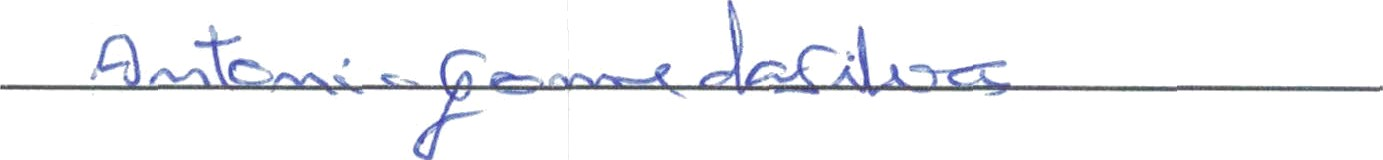 Antonio Gome da Silva